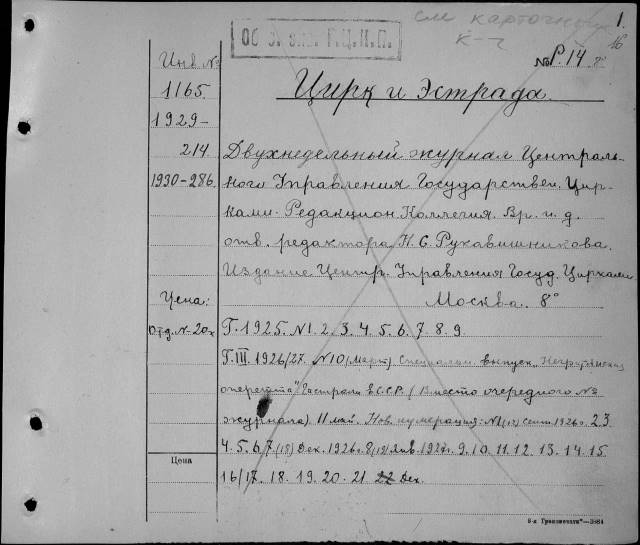 см карточный
к-г
1.
16
Об. з. эк. Г.Ц.К.П.
Инв №
№ Р.14
1165.
Цирк и Эстрада.
1929-
214
Двухнедельный журнал Централь-
1930-286.
ного Управления Государствен. Цир-
ками. Редакцион. Коллегия. Вр. и. д.
отв. редактора Н. С. Рукавишникова.
Издание Центр. Управления Госуд. Цирками
Цена:
Москва. 8°
Отд. №-20к
Г. 1925. N 1. 2. 3. 4. 5. 6. 7. 8. 9.
Г. III. 1926/27. N 10 (март) Специальн. выпуск „Негритянская
оперетта" Гастроли в С.С.С.Р. (Вместо очередного №
журнала). 11 май. Нов. нумерация: N1 (12) Сент. 1926 г. 2. 3
4. 5. 6. 7 (18) Дек. 1926 г. 8 (19) Янв. 1927 г. 9. 10. 11. 12. 13. 14. 15
Цена
16/17. 18. 19. 20. 21 Дек.